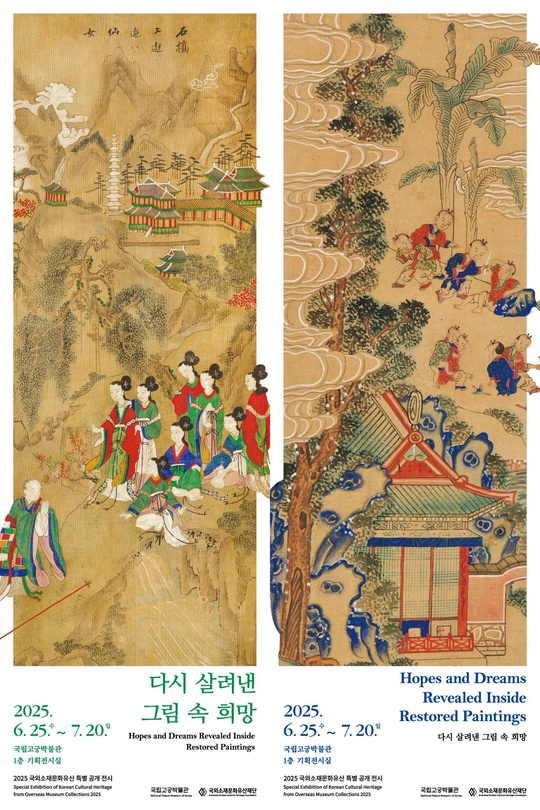 石橋
上邂
逅
八
仙
女
다시 살려낸
그림 속 희망
Hopes and Dreams Revealed Inside
Restored Paintings
2025.
6. 25.수 ~ 7. 20.일
국립고궁박물관
1층 기획전시실
2025 국외소재문화유산 특별 공개 전시
Special Exhibition of Korean Cultural Heritage
from Overseas Museum Collections 2025
국립고궁박물관
National Palace Museum of Korea
국외소재문화유산재단
Overseas Korean Cultural Heritage Foundation
Hopes and Dreams
Revealed Inside
Restored Paintings
다시 살려낸 그림 속 희망
2025.
6. 25.수 ~ 7. 20.일
국립고궁박물관
1층 기획전시실
2025 국외소재문화유산 특별 공개 전시
Special Exhibition of Korean Cultural Heritage
from Overseas Museum Collections 2025
국립고궁박물관
National Palace Museum of Korea
국외소재문화유산재단
Overseas Korean Cultural Heritage Foundation